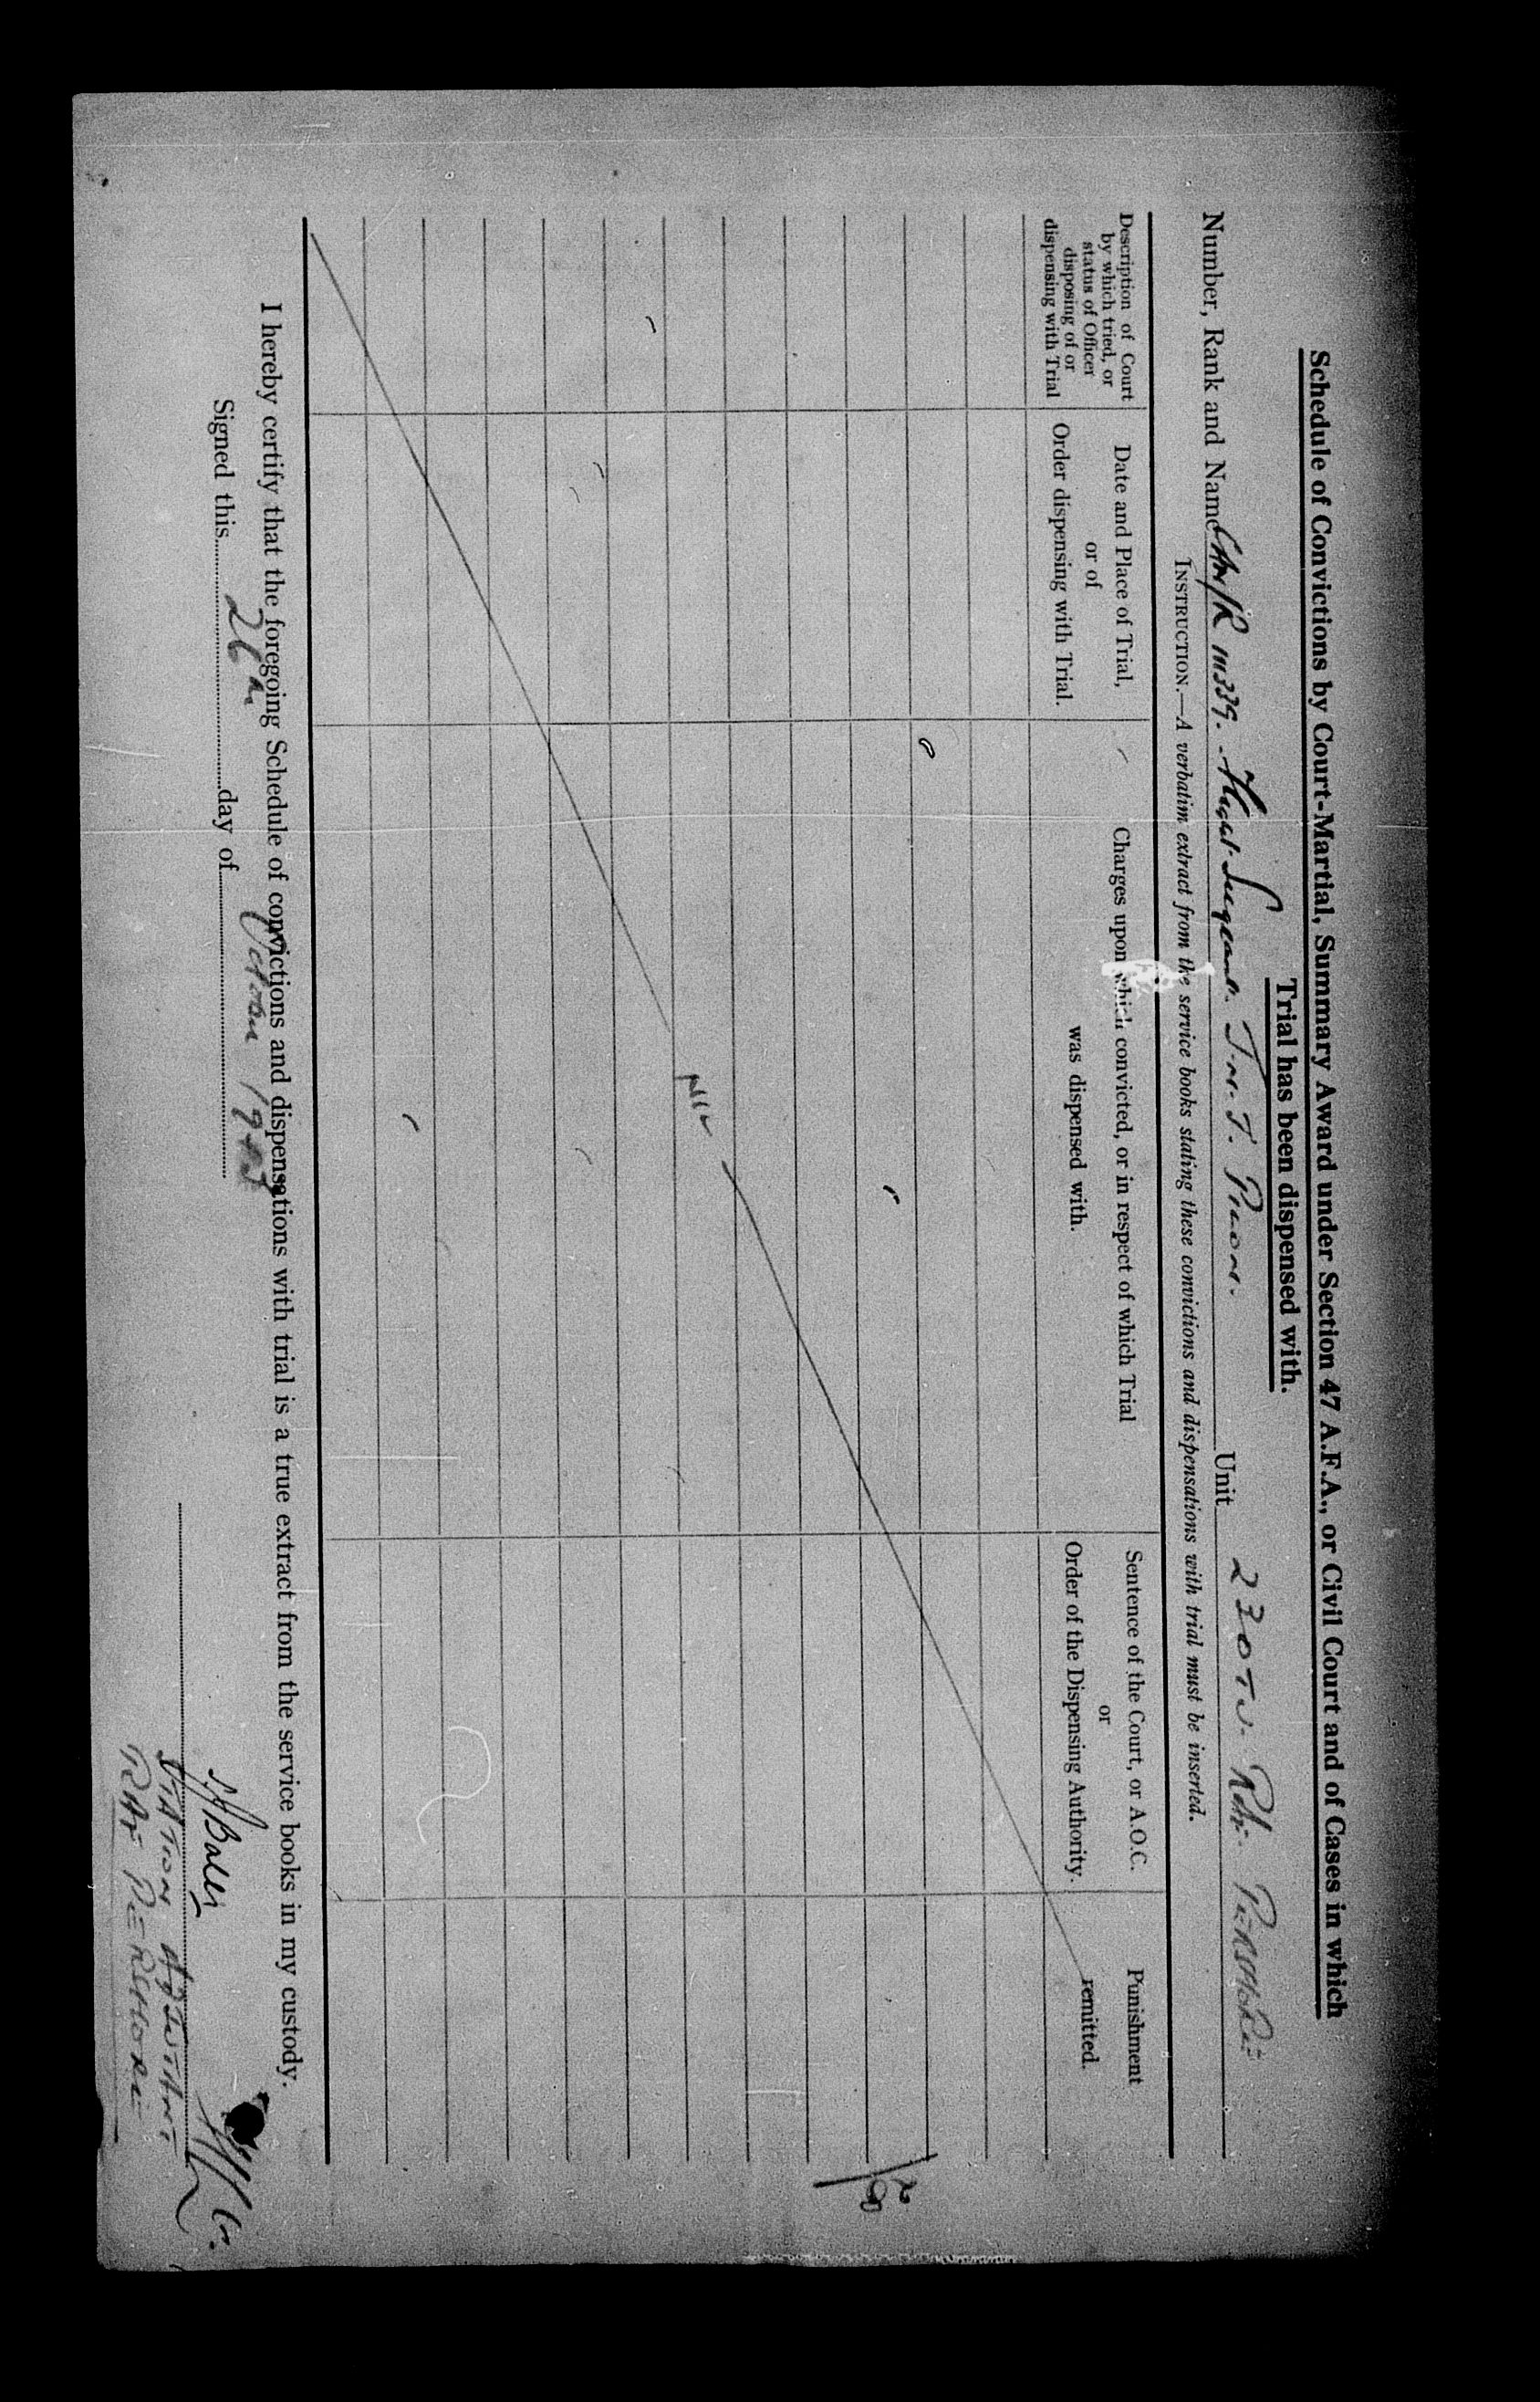 Schedule of Convictions by Court-Martial, Summary Award under Section 47 A.F.A., or Civil Court and of Cases in which
Trial has been dispensed with.
Number, Rank and Name Can/R Flight Sergeant. Unit 23 OTU. RAF. PERSHORE
INSTRUCTION.—A verbatim extract from the service books stating these convictions and dispensations with trial must be inserted.
Description of Court by which tried, or status of Officer disposing of or dispensing with Trial
Date and Place of Trial, or of Order dispensing with Trial.
Charges upon which convicted, or in respect of which Trial was dispensed with.
Sentence of the Court, or A.O.C. or Order of the Dispensing Authority.
Punishment remitted.
NIL
28
I hereby certify that the foregoing Schedule of convictions and dispensations with trial is a true extract from the service books in my custody.
Signed this 26th day of October 1943
F/L
STATION ADJUTANT
RAF PERSHORE